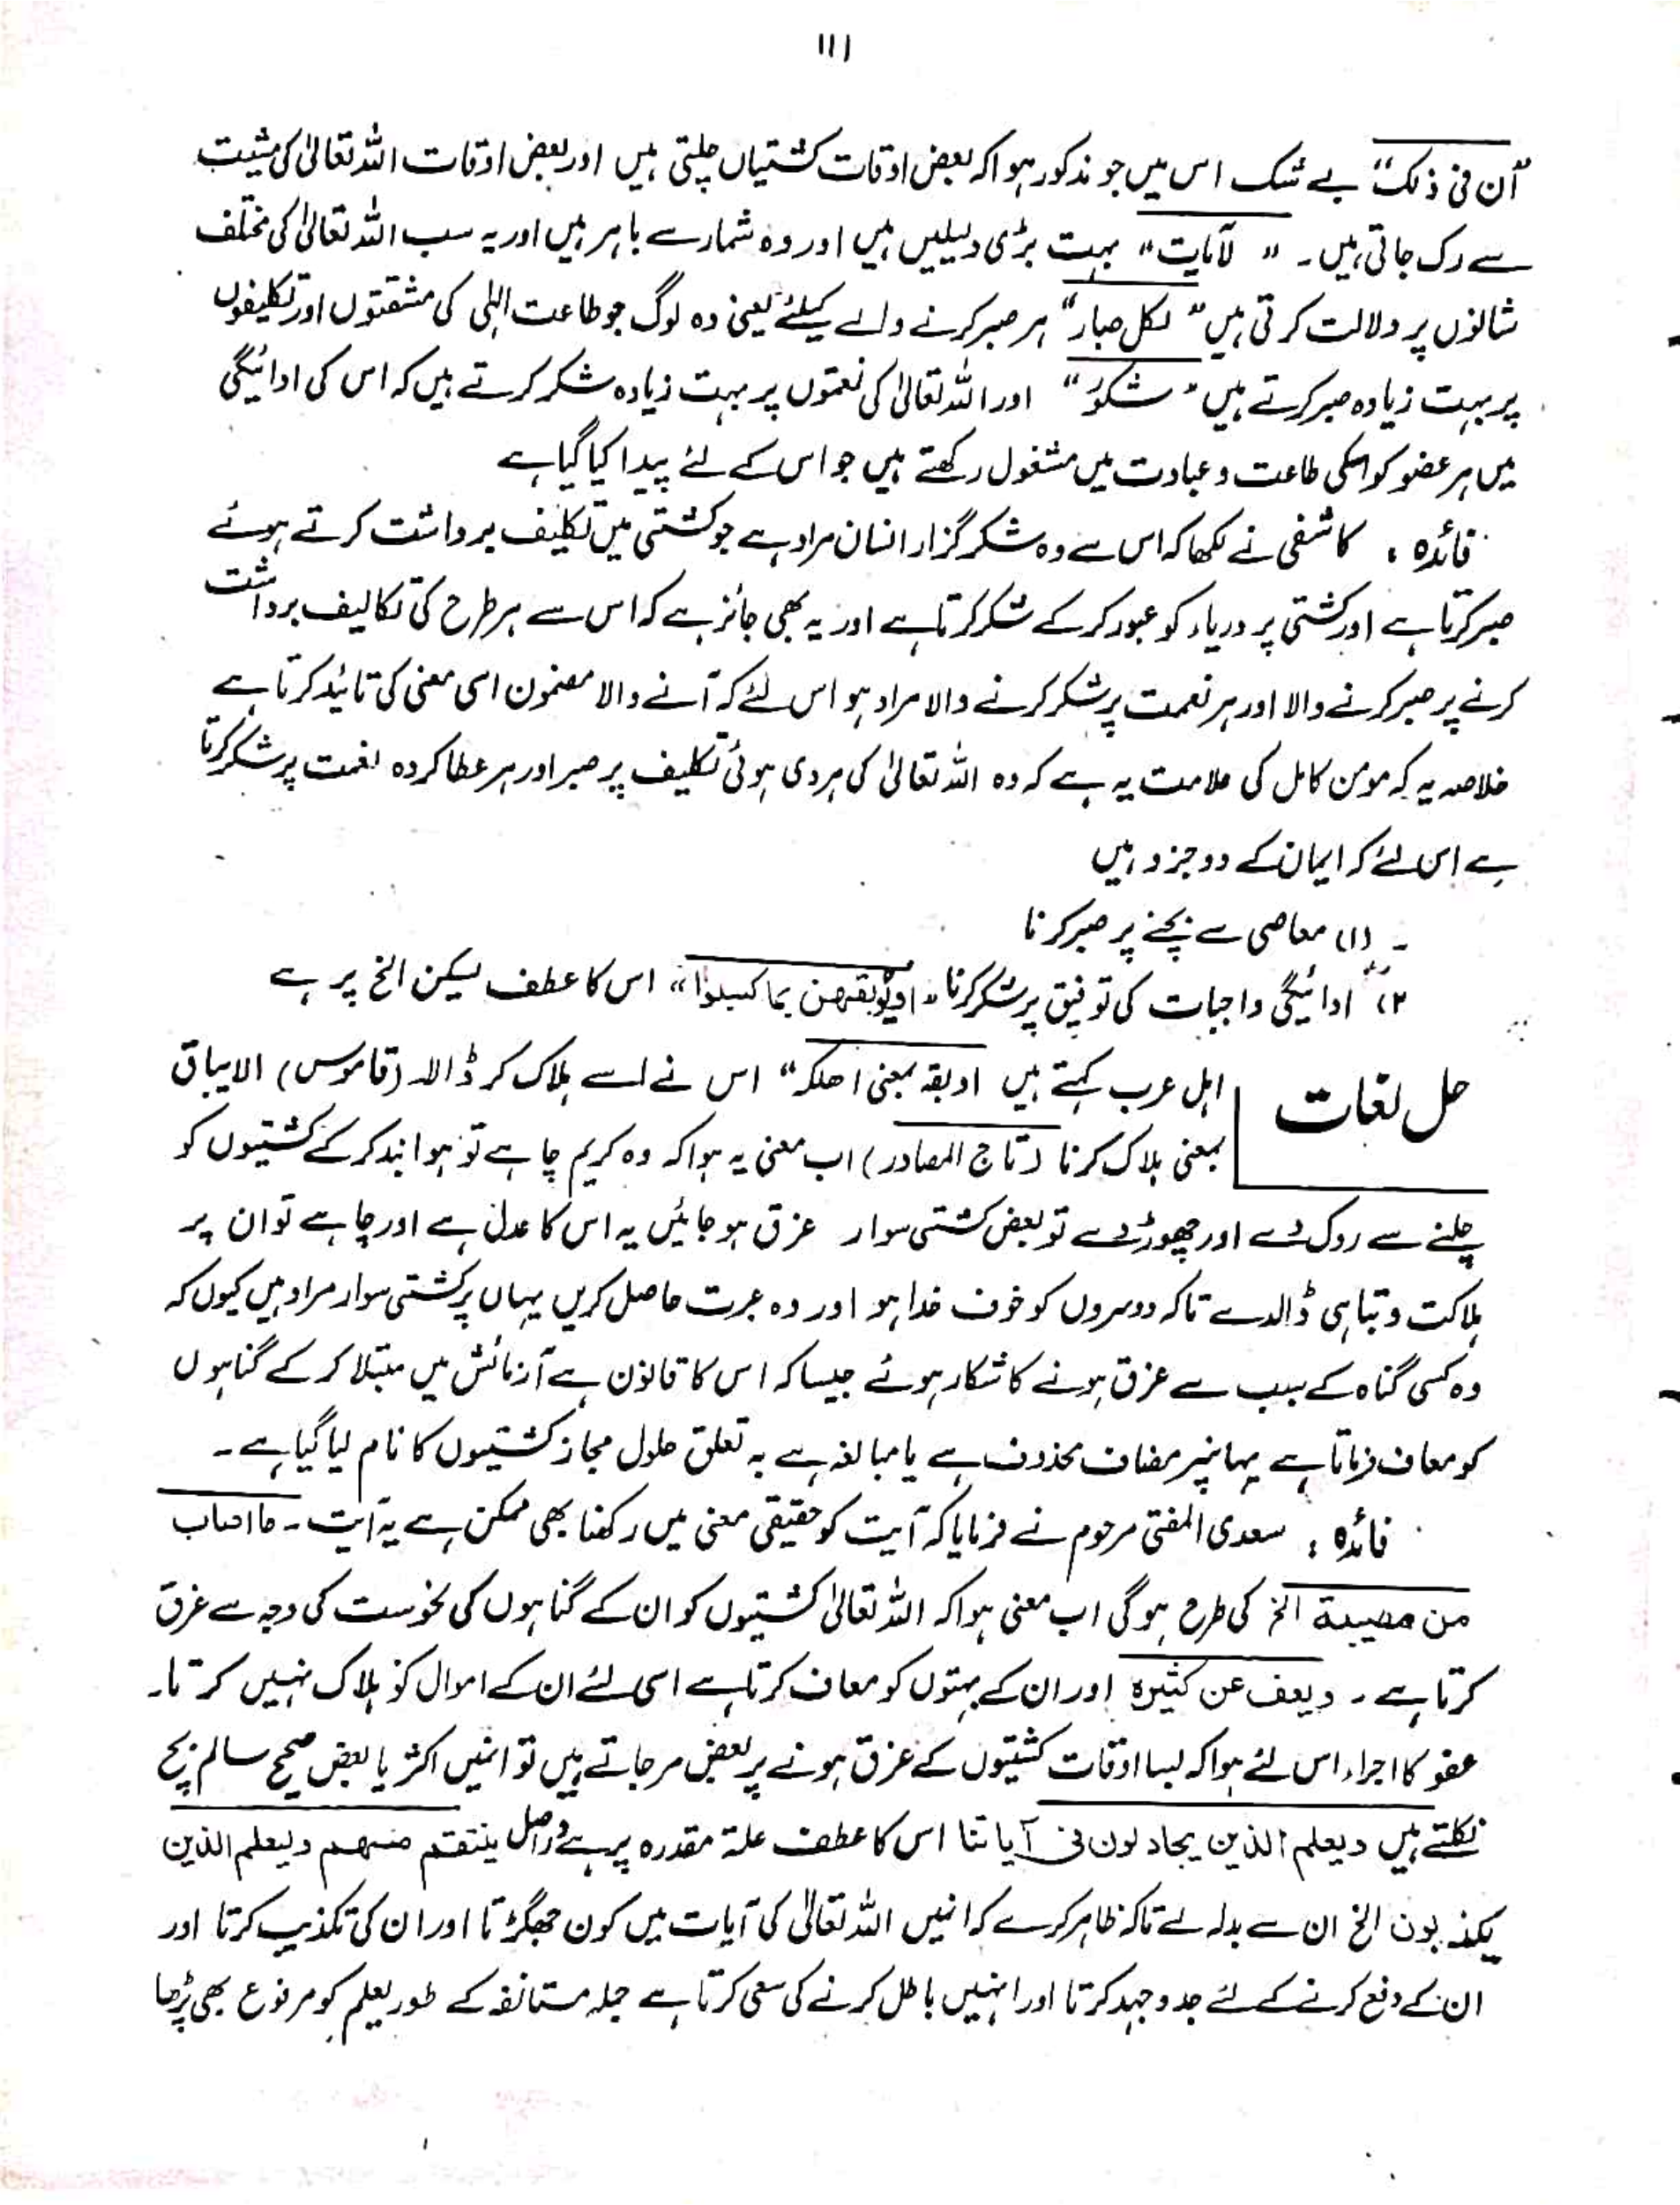 ۱۱۱
”ان فی ذٰلک“ بے شک اس میں جو مذکور ہوا کہ بعض اوقات کشتیاں چلتی ہیں اور بعض اوقات اللہ تعالیٰ کی مشیت
سے رک جاتی ہیں۔ ” لآیات “ بہت بڑی دلیلیں ہیں اور وہ شمار سے باہر ہیں اور یہ سب اللہ تعالیٰ کی مختلف
شانوں پر دلالت کرتی ہیں ” لکل صبار “ ہر صبر کرنے والے کیلئے یعنی وہ لوگ جو طاعت الٰہی کی مشقتوں اور تکلیفوں
پر بہت زیادہ صبر کرتے ہیں ” شکور “ اور اللہ تعالیٰ کی نعمتوں پر بہت زیادہ شکر کرتے ہیں کہ اس کی ادائیگی
میں ہر عضو کو اسکی طاعت و عبادت میں مشغول رکھتے ہیں جو اس کے لئے پیدا کیا گیا ہے
فائدہ : کاشفی نے لکھا کہ اس سے وہ شکر گزار انسان مراد ہے جو کشتی میں تکلیف برداشت کرتے ہوئے
صبر کرتا ہے اور کشتی پر دریاء کو عبور کر کے شکر کرتا ہے اور یہ بھی جائز ہے کہ اس سے ہر طرح کی تکالیف برداشت
کرنے پر صبر کرنے والا اور ہر نعمت پر شکر کرنے والا مراد ہو اس لئے کہ آنے والا مضمون اسی معنی کی تائید کرتا ہے
خلاصہ یہ کہ مومن کامل کی علامت یہ ہے کہ وہ اللہ تعالیٰ کی ہر دی ہوئی تکلیف پر صبر اور ہر عطا کردہ نعمت پر شکر کرتا
ہے اس لئے کہ ایمان کے دو جزو ہیں
۔ (۱) معاصی سے بچنے پر صبر کرنا
(۲) ادائیگی واجبات کی توفیق پر شکر کرنا ” او یوبقهن بما کسبوا “ اس کا عطف لیسکن الخ پر ہے
حل لغات
اہل عرب کہتے ہیں اوبقہ بمعنی اھلکہ “ اس نے اسے ہلاک کر ڈالا۔ (قاموس) الایباق
بمعنی ہلاک کرنا (تاج المصادر) اب معنی یہ ہوا کہ وہ کریم چاہے تو ہوا بند کر کے کشتیوں کو
چلنے سے روک دے اور چھوڑ دے تو بعض کشتی سوار غرق ہو جائیں یہ اس کا عدل ہے اور چاہے تو ان پر
ہلاکت و تباہی ڈالدے تاکہ دوسروں کو خوف خدا ہو اور وہ عبرت حاصل کریں یہاں پر کشتی سوار مراد ہیں کیوں کہ
وہ کسی گناہ کے سبب سے غرق ہونے کا شکار ہوئے جیسا کہ اس کا قانون ہے آزمائش میں مبتلا کر کے گناہوں
کو معاف فرماتا ہے یہانپر مضاف محذوف ہے یا مبالغہ ہے بہ تعلق حلول مجاز کشتیوں کا نام لیا گیا ہے۔
فائدہ : سعدی المفتی مرحوم نے فرمایا کہ آیت کو حقیقی معنی میں رکھنا بھی ممکن ہے یہ آیت۔ ما اصاب
من مصیبة الخ کی طرح ہو گی اب معنی ہوا کہ اللہ تعالیٰ کشتیوں کو ان کے گناہوں کی نحوست کی وجہ سے غرق
کرتا ہے۔ ویعف عن کثیرہ اور ان کے بہتوں کو معاف کرتا ہے اسی لئے ان کے اموال کو ہلاک نہیں کرتا۔
عفو کا اجراء اس لئے ہوا کہ بسا اوقات کشتیوں کے غرق ہونے پر بعض مر جاتے ہیں تو انہیں اکثر یا بعض صحیح سالم بچ
نکلتے ہیں ویعلم الذین یجادلون فی آیاتنا اس کا عطف علۃ مقدرہ پر ہے دراصل ینتقم منهم ولیعلم الذین
یکذبون الخ ان سے بدلہ لے تاکہ ظاہر کرے کہ انہیں اللہ تعالیٰ کی آیات میں کون جھگڑتا اور ان کی تکذیب کرتا اور
ان کے دفع کرنے کے لئے جدوجہد کرتا اور انہیں باطل کرنے کی سعی کرتا ہے جملہ مستانفہ کے طور یعلم کو مرفوع بھی پڑھا